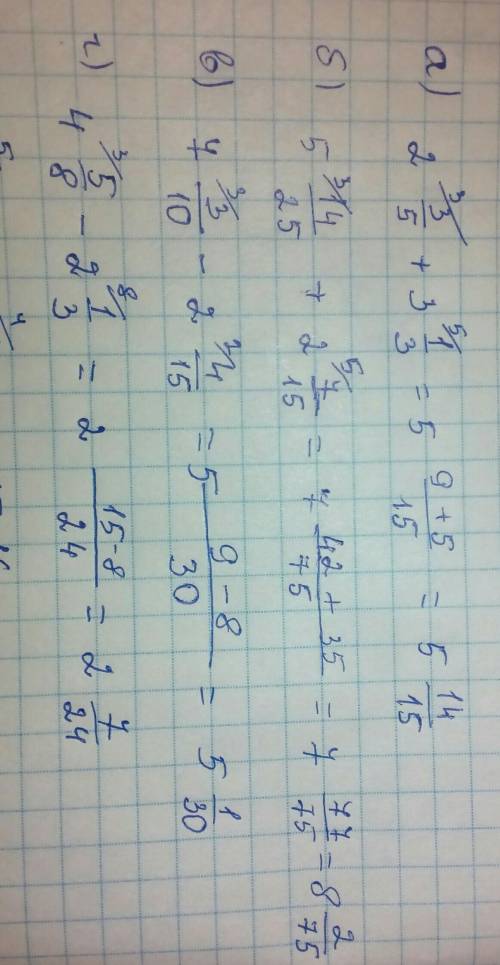 а) 2 ³⁄ 3/5 + 3 ⁵⁄ 1/3 = 5 (9+5)/15 = 5 14/15
б) 5 ³⁄ 14/25 + 2 ⁵⁄ 7/15 = 7 (42+35)/75 = 7 77/75 = 8 2/75
в) 7 ³⁄ 3/10 - 2 ²⁄ 4/15 = 5 (9-8)/30 = 5 1/30
г) 4 ³⁄ 5/8 - 2 ⁸⁄ 1/3 = 2 (15-8)/24 = 2 7/24